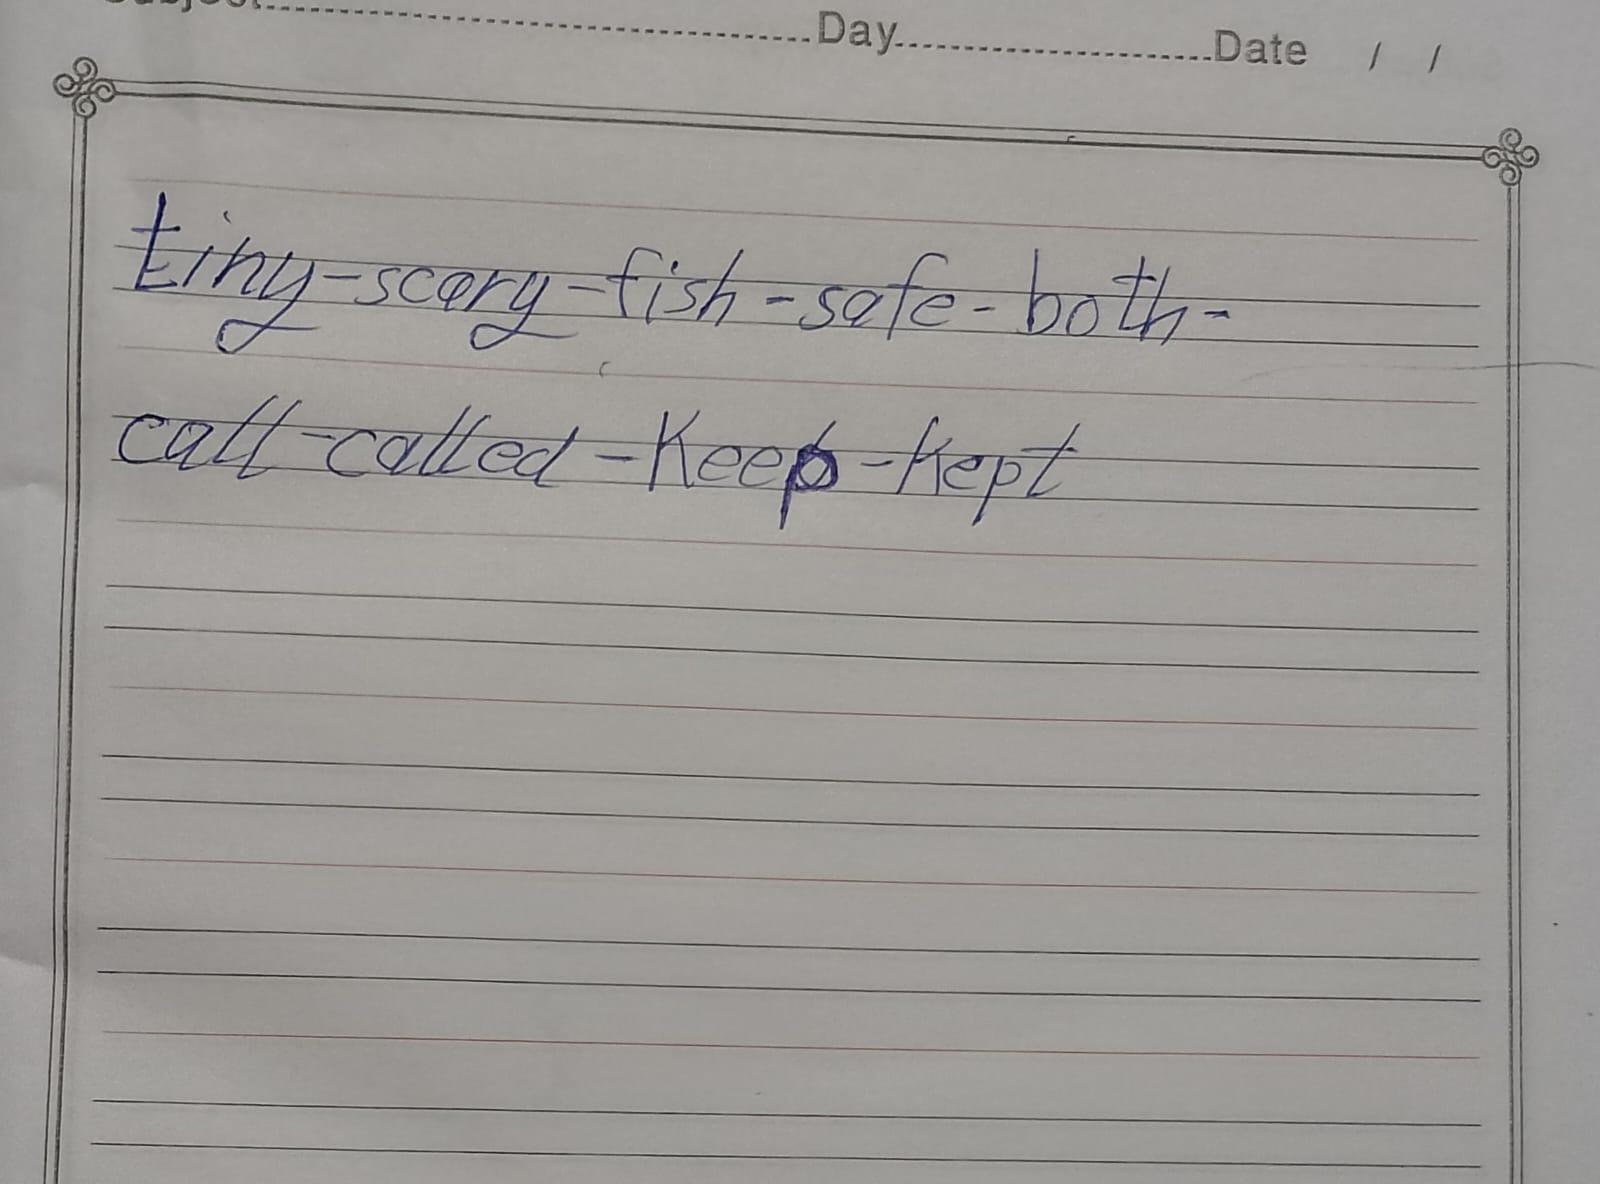 Day Date / /
tiny-scary-fish-safe-both-
call-called-Keep-Kept